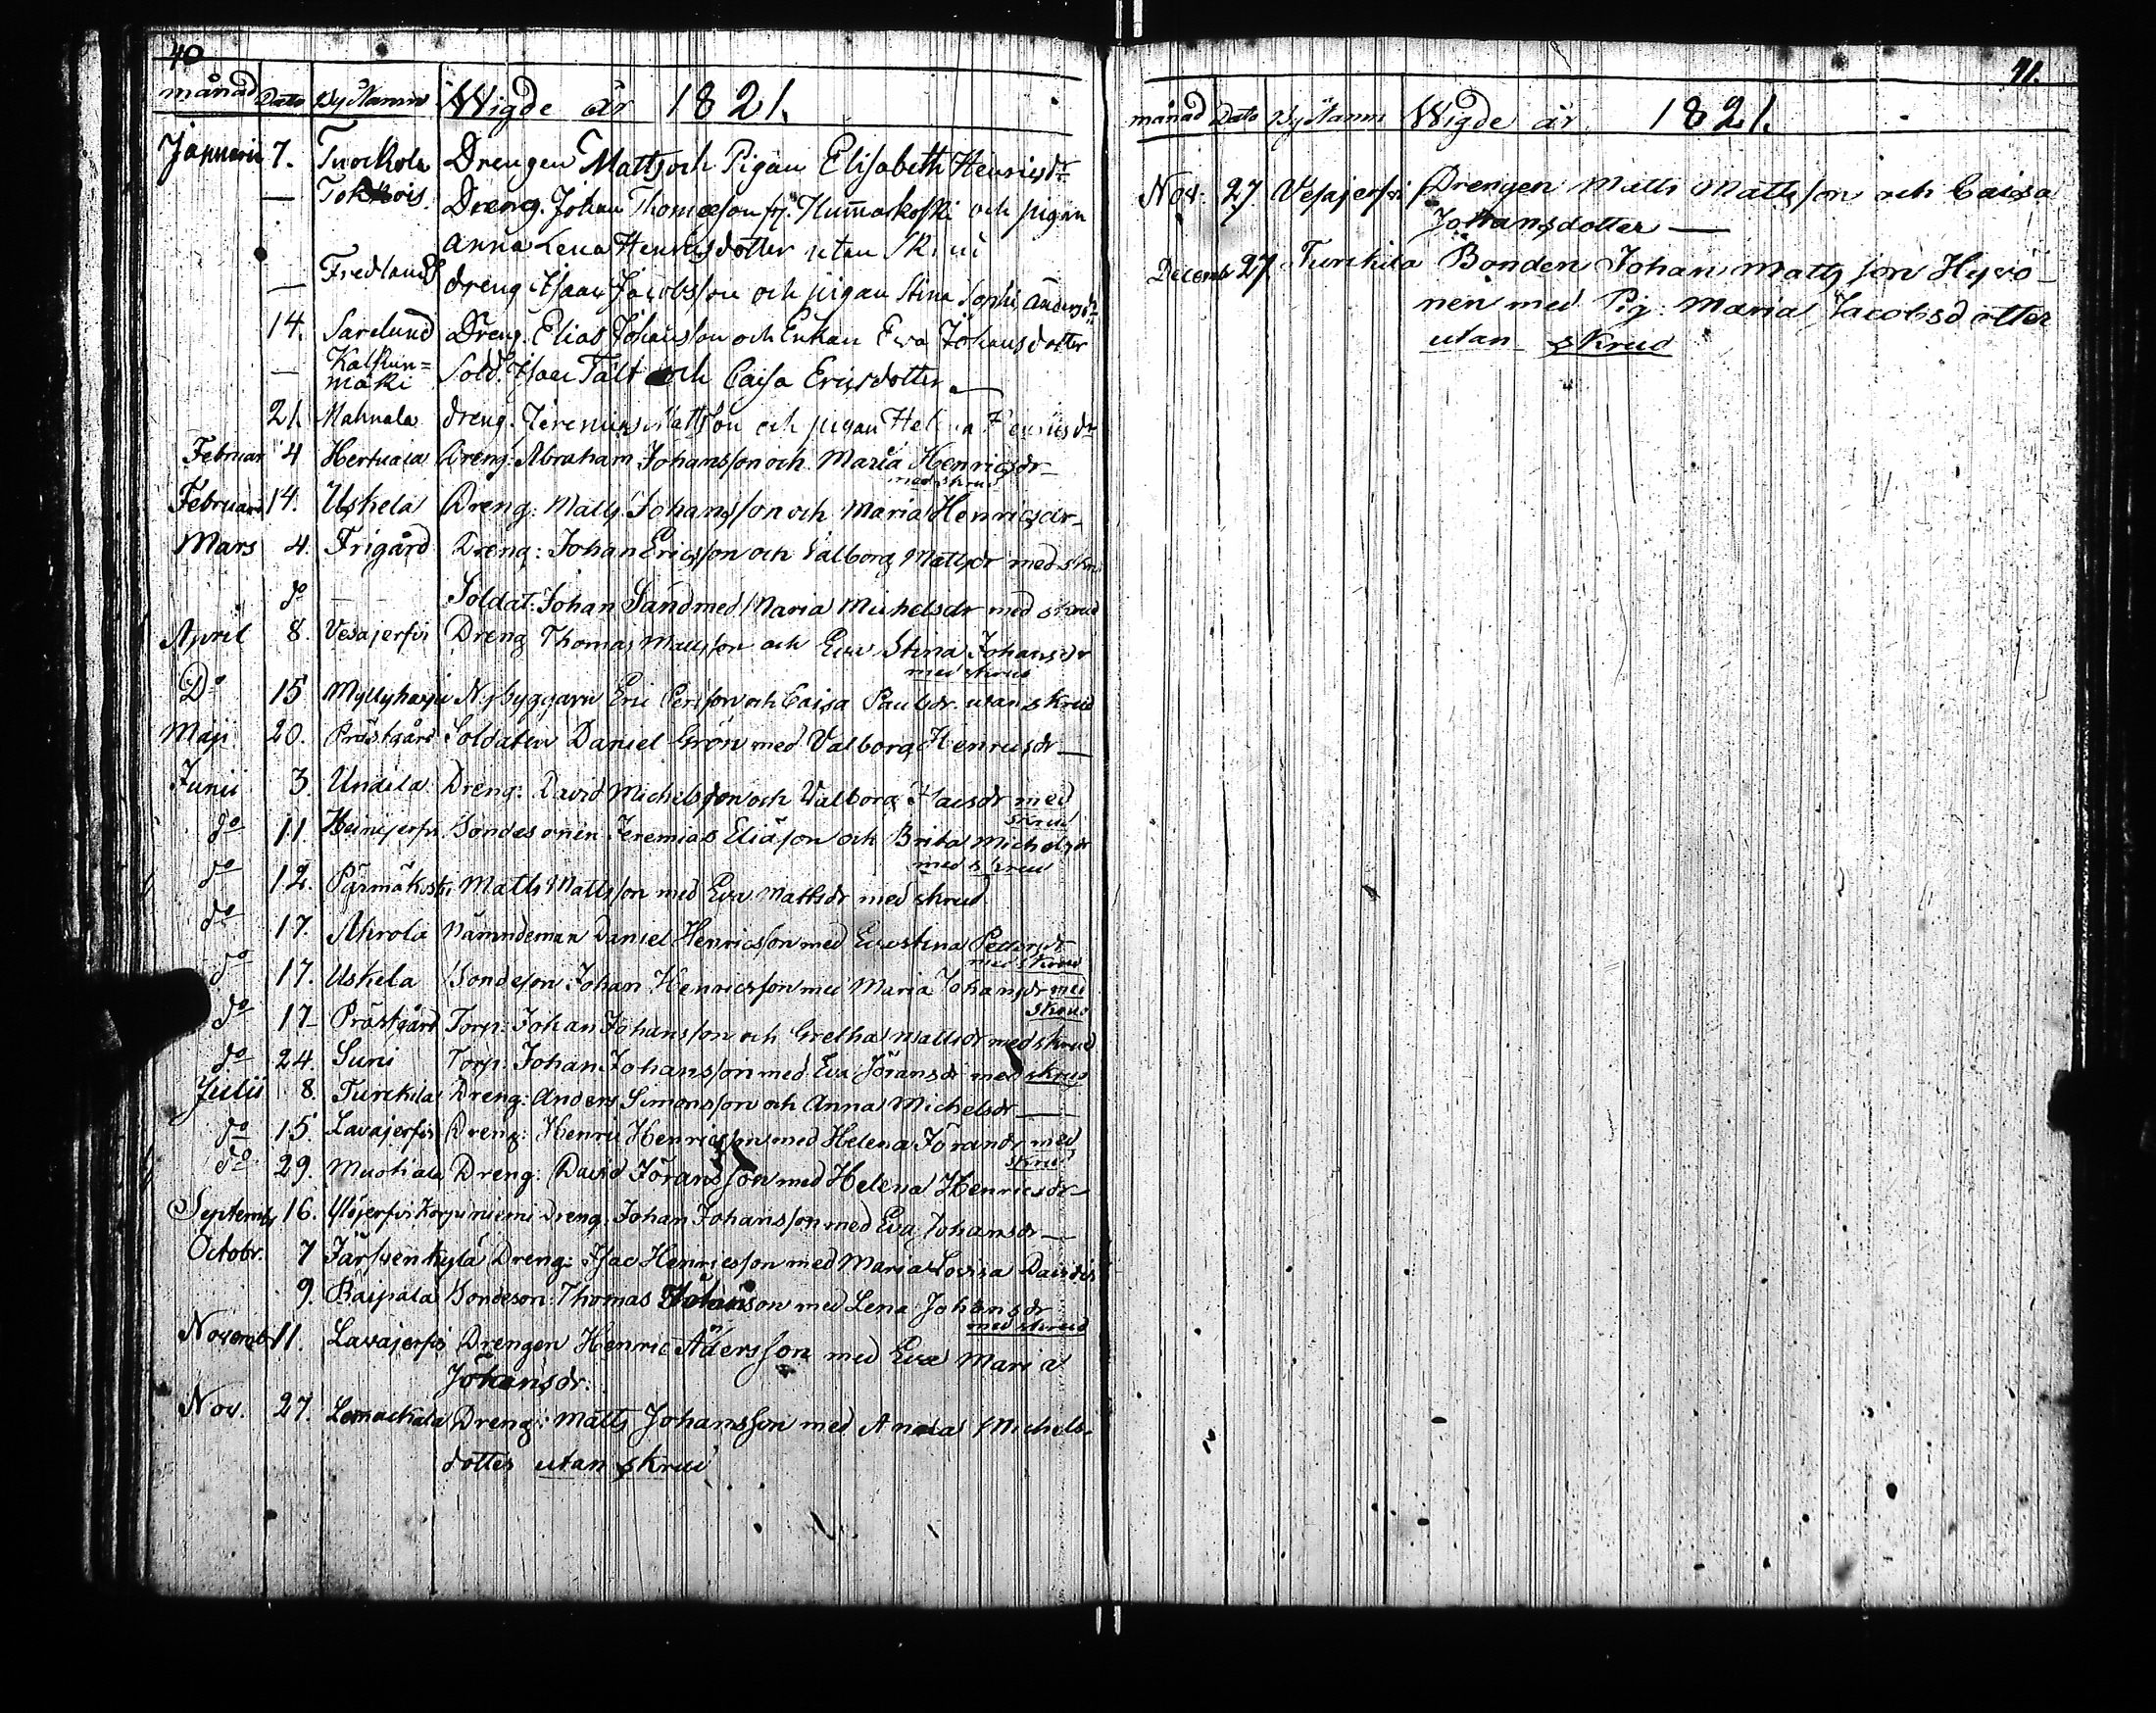 40
månad Dato Bys Namn Wigde år 1821.
Januarii 7. Tuorkola Drengen Matts och Pigan Elisabeth Henricsdr
— Tokkois. Dreng. Johan Thomasson fr. Hummakoski och pigan
Anna Lena Henricsdotter utan Skrud
— Fredlands dreng Isaac Jacobsson och pigan Stina Sophi Andersdr
14. Sarelund Dreng. Elias Johansson och Enkan Eva Johansdotter
— Kalkun=
mäki Sold. Isaac Tält och Caisa Ericsdotter —
21. Mahnala dreng. Jeremias Mattsson och pigan Helena Henricsdr
Februar 4 Hertuala Dreng: Abraham Johansson och Maria Henricsdr —
med skrud
Februari 14. Uskela Dreng: Matts Johansson och Maria Henricsdr —
Mars 4. Frigård Dreng: Johan Ericsson och Valborg Mattsdr med skru
do — Soldat: Johan Sand med Maria Michelsdr med skrud
April 8. Vesajerfvi Dreng Thomas Mattsson och Eva Stina Johansdr
med skrud
Do 15 Myllyharju Nybyggaren Eric Persson och Caisa Paulsdr. utan skrud
Maji 20. Prästgård Soldaten Daniel Grön med Valborg Henricsdr —
Junii 3. Undila Dreng: David Michelsson och Valborg Isacsdr med
skrud
do 11. Heinijerfvi Bondesonen Jeremias Eliasson och Brita Michelsdr
med skrud
do 12. Pärmäkoski Matts Mattsson med Eva Mattsdr med skrud
do 17. Ahrola Nämndeman Daniel Henricsson med Evastina Pettersdr
med skrud
do 17. Uskela Bondeson Johan Henricsson med Maria Johansdr med
skrud
do 17 — Prästgård Torp: Johan Johansson och Gretha Mattsdr med skrud
do 24. Suni Torp: Johan Johansson med Eva Jöransdr med skrud
Julii 8. Turckila Dreng: Anders Simonsson och Anna Michelsdr —
do 15. Lavajerfvi Dreng: Henric Henricsson med Helena Jöransdr med
skrud
do 29. Mustiala Dreng: David Jöransson med Helena Henricsdr —
Septemb 16. Ylöjerfvi Korpiniemi Dreng. Johan Johansson med Eva Johansdr —
Octobr. 7 Järfvenkylä Dreng: Isac Henricsson med Maria Lovisa Davidsdr
9. Raipala Bondeson: Thomas Johansson med Lena Johansdr
med skrud
Novemb 11. Lavajerfvi Drengen Henric Andersson med Eva Maria
Johansdr.
Nov. 27. Lemackala Dreng: Matts Johansson med Anna Michels-
dotter utan skrud
41.
månad Dato Bys Namn Wigde år 1821.
Nov. 27 Vesajerfvi Drengen Matts Mattsson och Caisa
Johansdotter —
Decemb 27 Turckila Bonden Johan Mattsson Hyvö-
nen med Pig. Maria Jacobsdotter
utan skrud